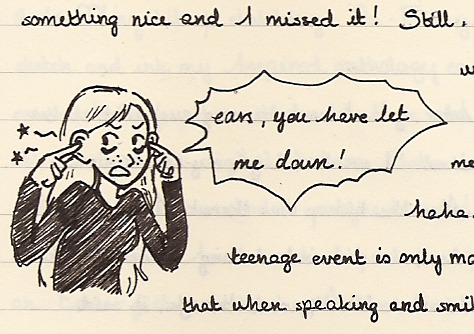 something nice and I missed it! Still,
ears, you have let
me down!
me
haha.
teenage event is only
that when speaking and